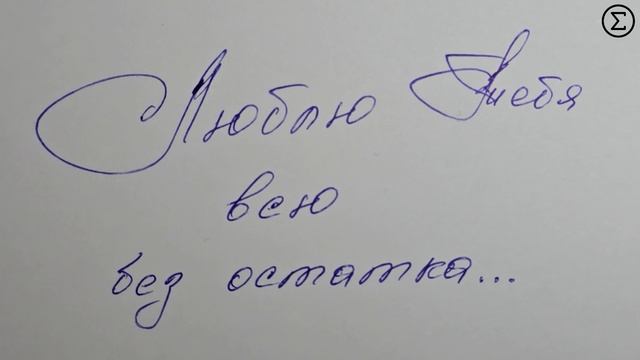 Люблю Тебя
всю
без остатка...
Σ